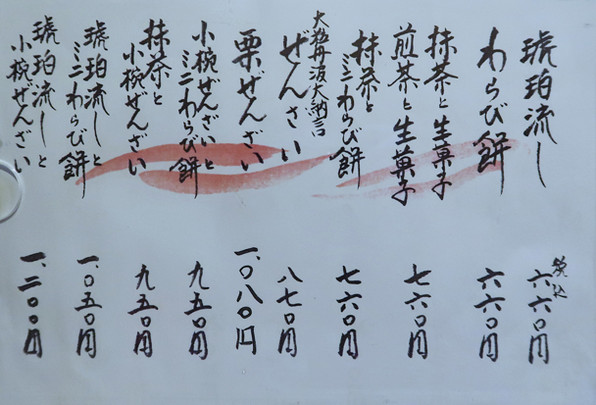 琥珀流し
税込
六六〇円
わらび餅
六六〇円
抹茶と生菓子
煎茶と生菓子
七六〇円
抹茶と
ミニわらび餅
七六〇円
大粒丹波大納言
ぜんざい
八七〇円
栗ぜんざい
一、〇八〇円
小椀ぜんざいと
ミニわらび餅
九五〇円
抹茶と
小椀ぜんざい
九五〇円
琥珀流しと
ミニわらび餅
一、〇五〇円
琥珀流しと
小椀ぜんざい
一、二〇〇円